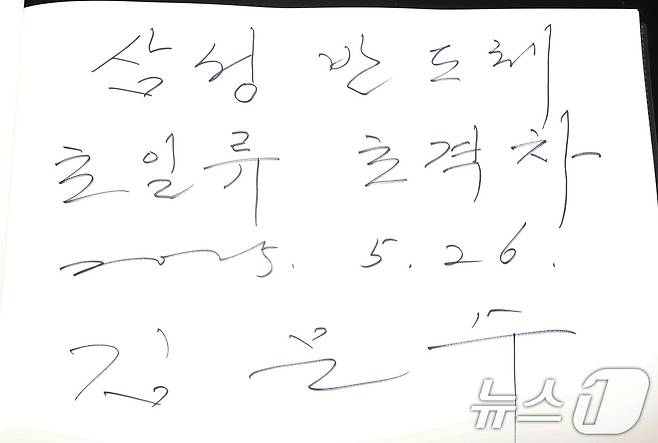 삼성 반도체
초일류 초격차
2025. 5. 26.
김 문 수
뉴스1